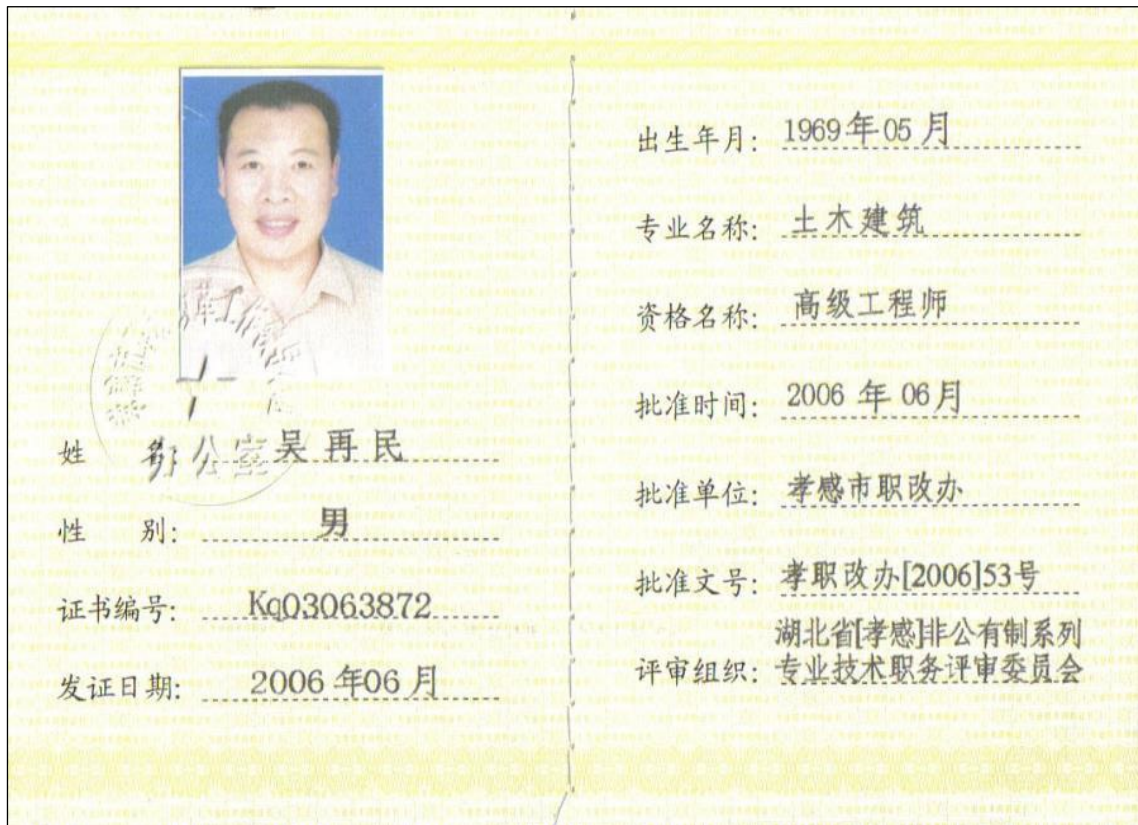 姓 吴再民
性 别： 男
证书编号： Kq03063872
发证日期： 2006年06月
办公室
出生年月： 1969年05月
专业名称： 土木建筑
资格名称： 高级工程师
批准时间： 2006 年 06月
批准单位： 孝感市职改办
批准文号： 孝职改办[2006]53号
湖北省[孝感]非公有制系列
评审组织： 专业技术职务评审委员会